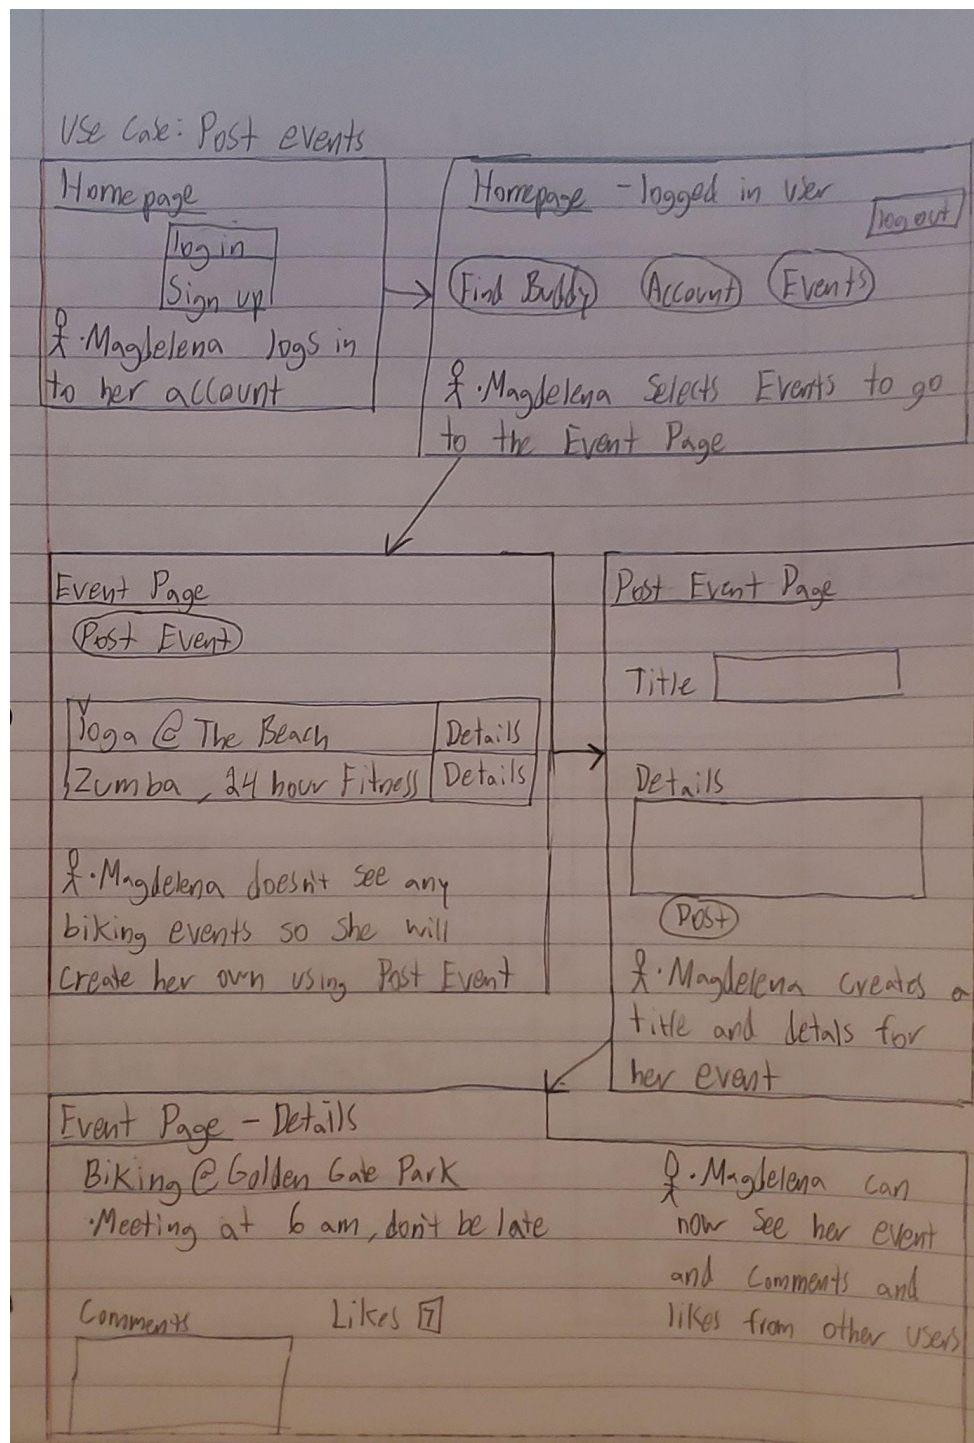 Use Case: Post events
Homepage
log in
Sign up
Magdelena logs in
to her account
Homepage - logged in user
log out
Find Buddy
Account
Events
Magdelena Selects Events to go
to the Event Page
Event Page
Post Event
Yoga @ The Beach
Details
Zumba, 24 hour Fitness
Details
Magdelena doesn't see any
biking events so she will
create her own using Post Event
Post Event Page
Title
Details
Post
Magdelena creates a
title and detals for
her event
Event Page - Details
Biking @ Golden Gate Park
Meeting at 6 am, don't be late
Comments
Likes 7
Magdelena can
now see her event
and comments and
likes from other users